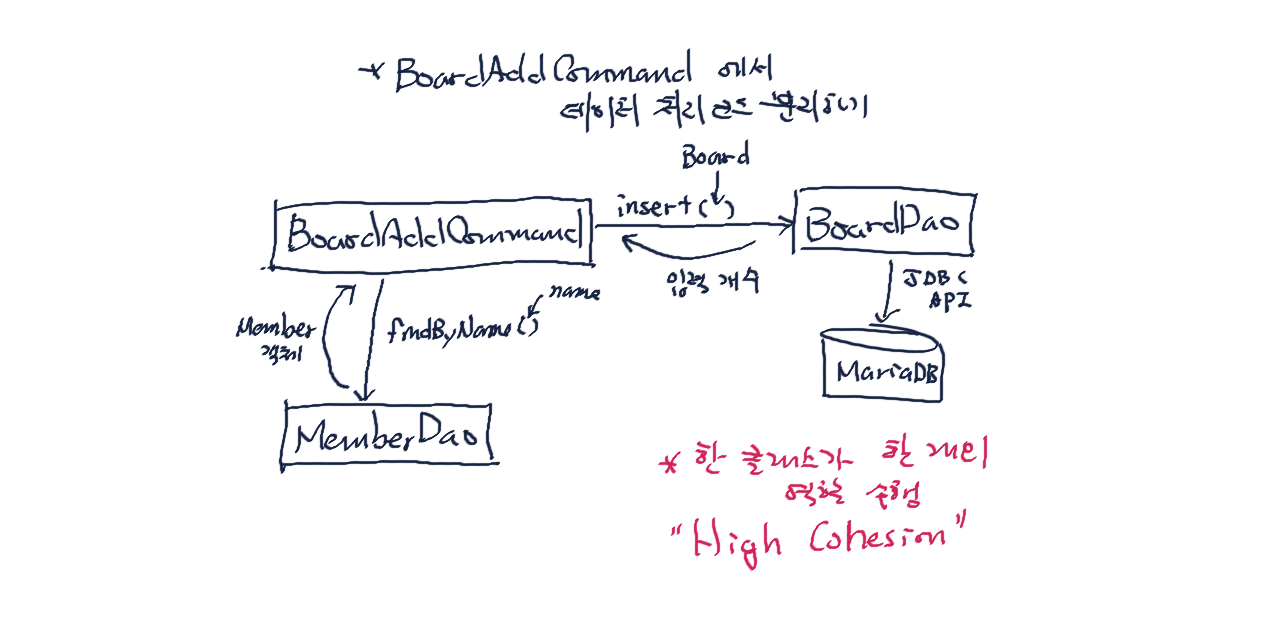 * BoardAddCommand 에서
데이터 처리 코드 분리하기
Board
insert( )
BoardAddCommand
BoardDao
입력 개수
JDBC
API
name
findByName()
Member
객체
MariaDB
MemberDao
* 한 클래스가 한 개의
역할 수행
"High Cohesion"